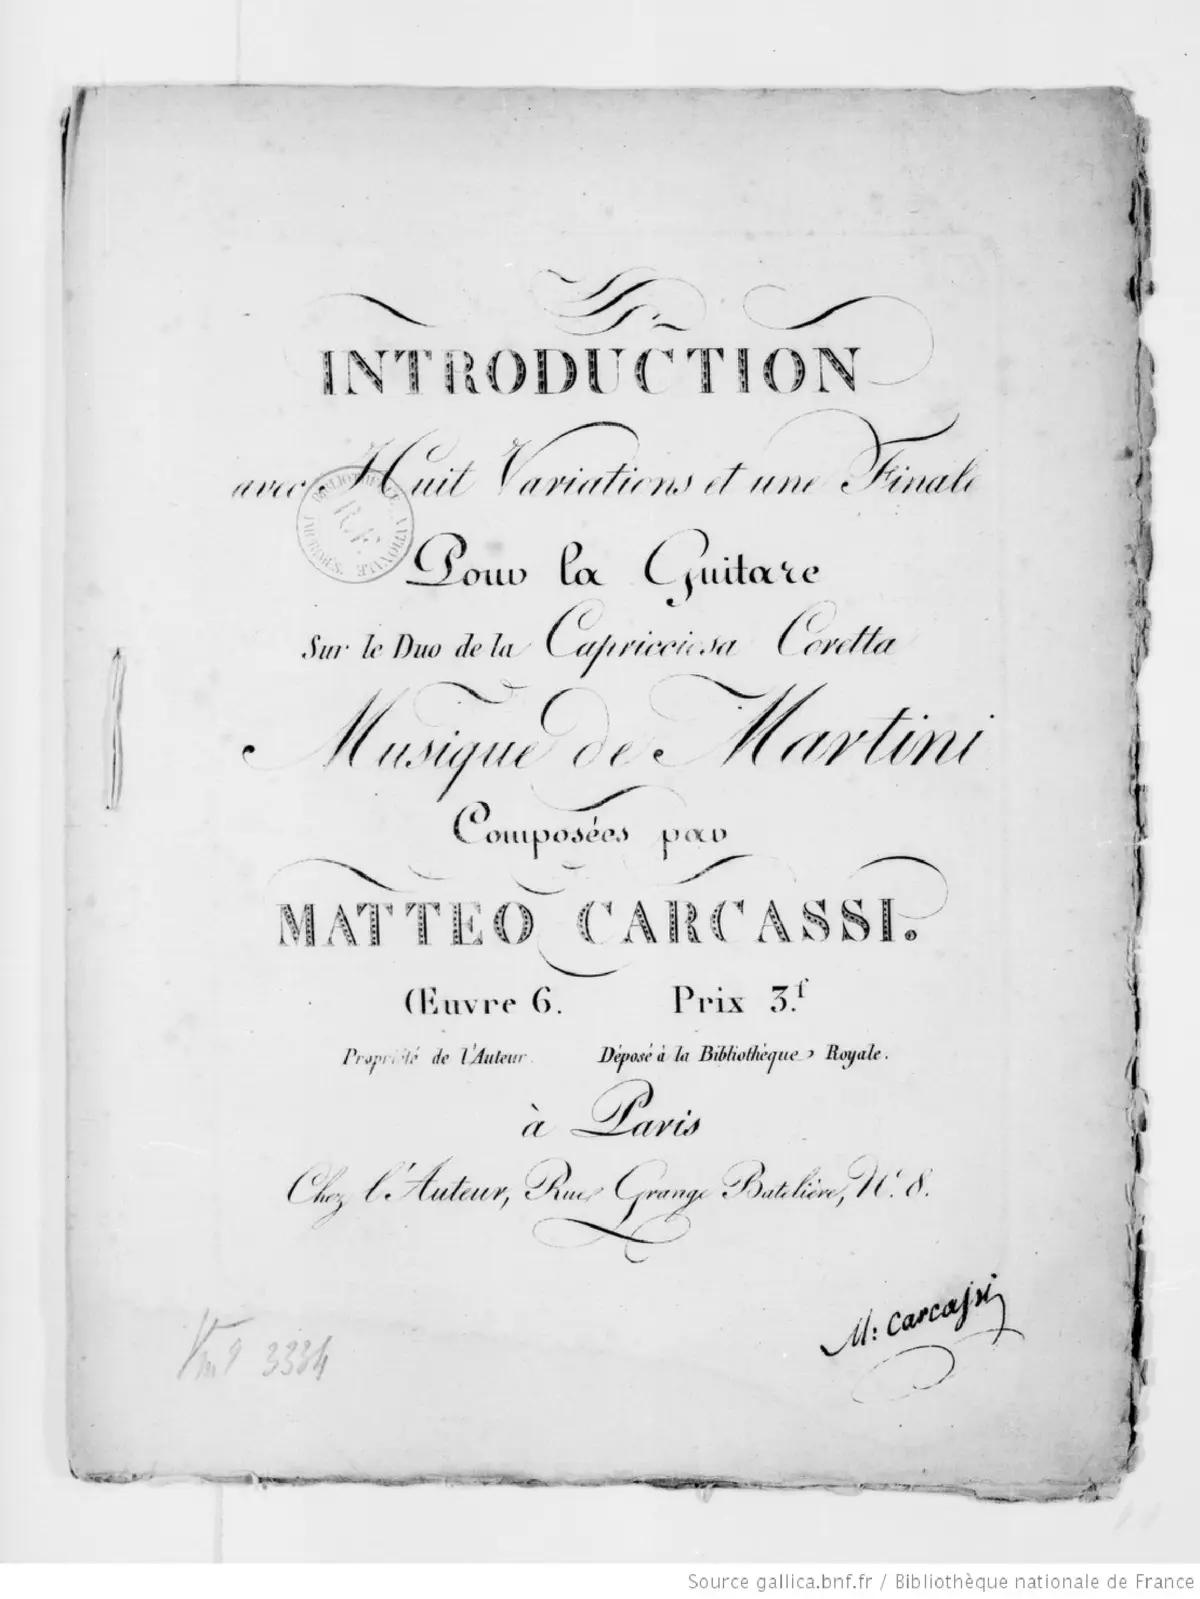 INTRODUCTION
avec Huit Variations et une Finale
BIBLIOTHEQUE NATIONALE
IMPRIMÉS.
R.F.
Pour la Guitare
Sur le Duo de la Capricciosa Coretta
Musique de Martini
Composées par
MATTEO CARCASSI.
Œuvre 6. Prix 3.f
Propriété de l'Auteur. Déposé à la Bibliothèque Royale.
à Paris
Chez l'Auteur, Rue Grange Batelière, N.º 8.
M: Carcassi
Vm9 3334
Source gallica.bnf.fr / Bibliothèque nationale de France